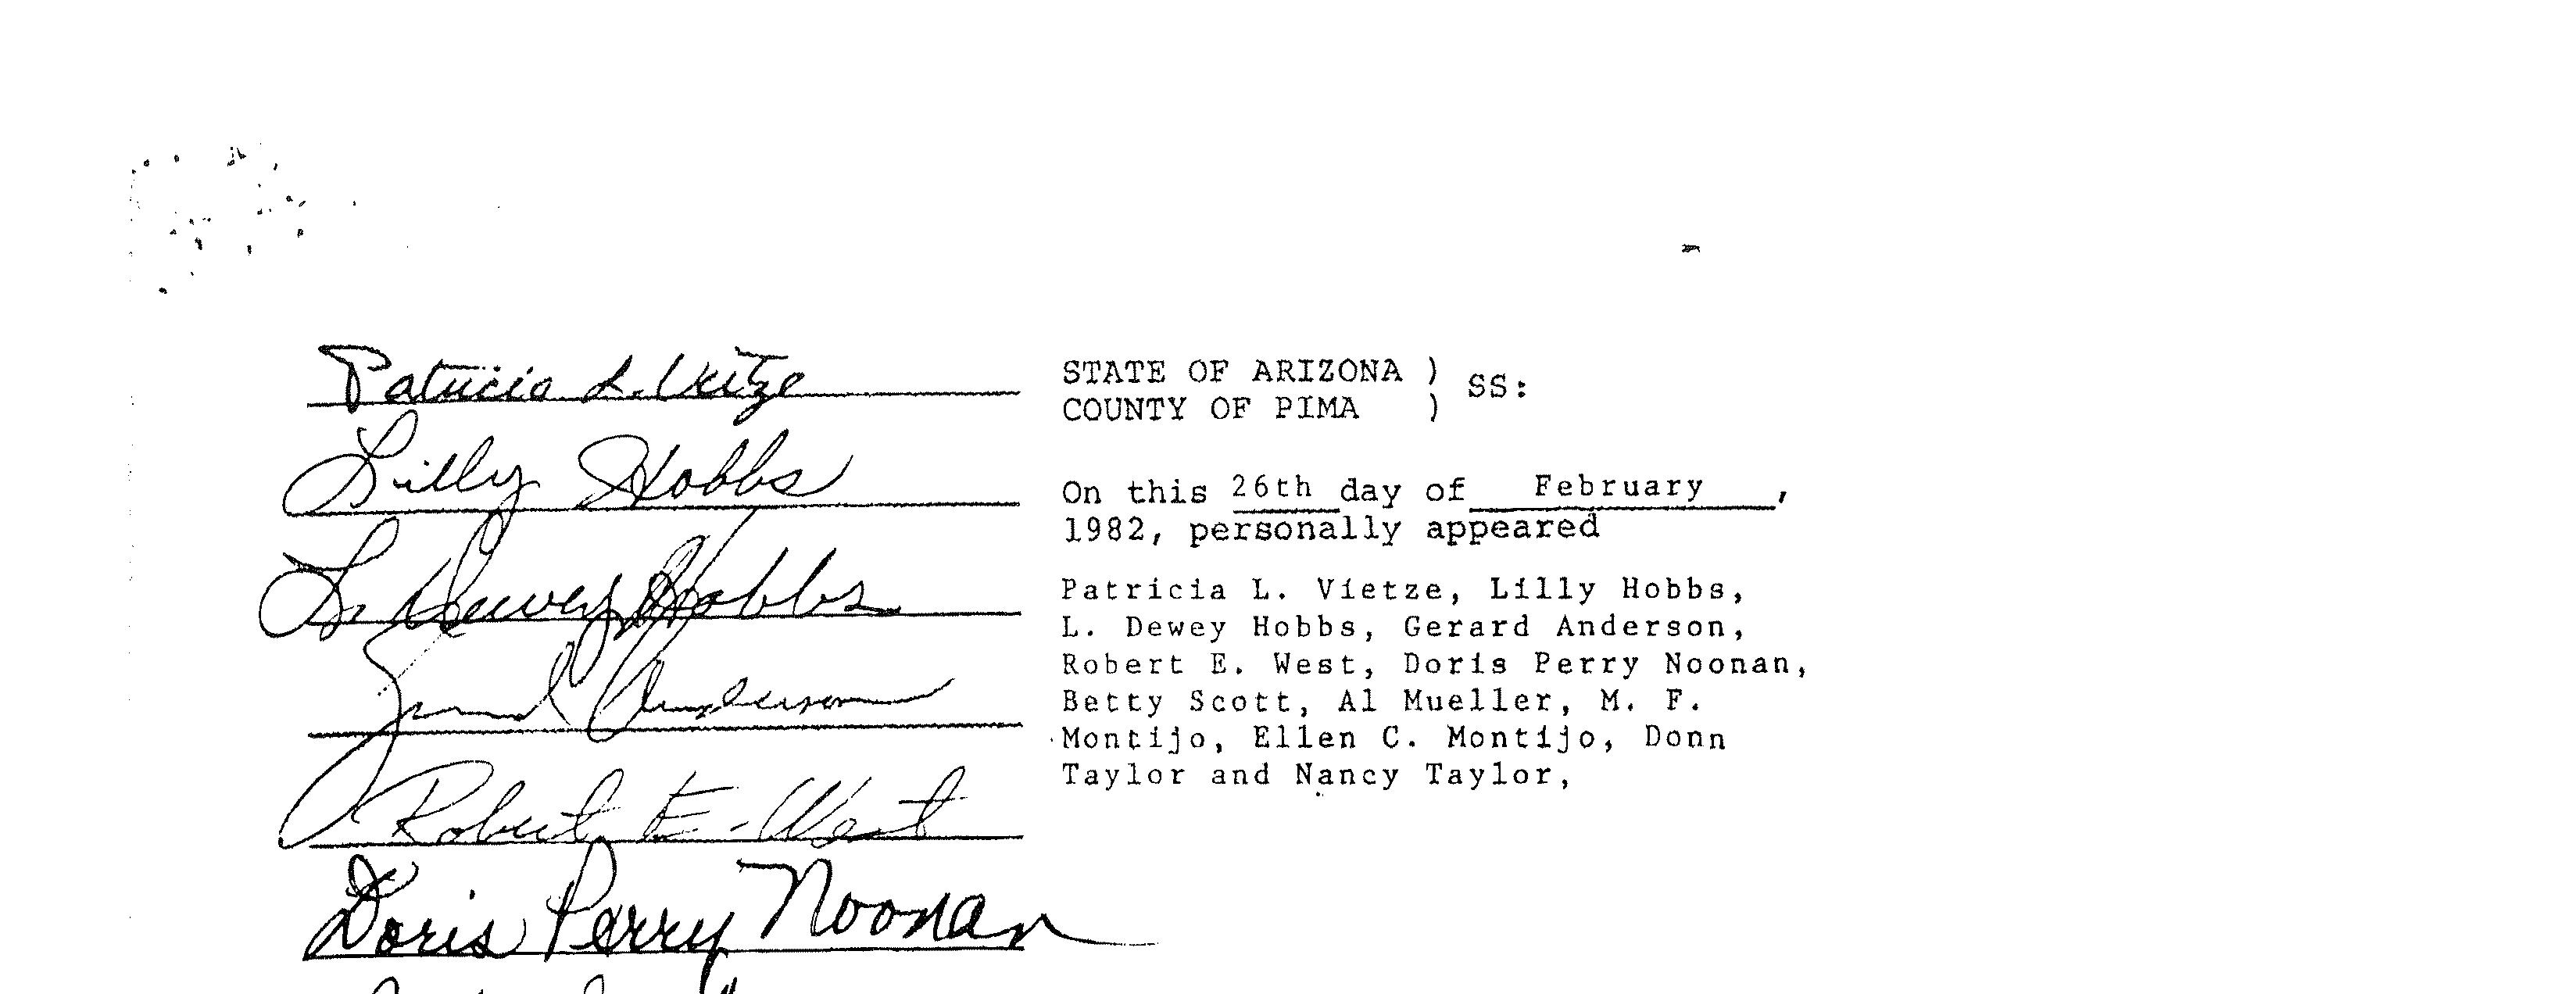 Patricia L. Vietze
Lilly Hobbs
L. Dewey Hobbs
Gerard Anderson
Robert E. West
Doris Perry Noonan
STATE OF ARIZONA )
SS:
COUNTY OF PIMA )
On this 26th day of February,
1982, personally appeared
Patricia L. Vietze, Lilly Hobbs,
L. Dewey Hobbs, Gerard Anderson,
Robert E. West, Doris Perry Noonan,
Betty Scott, Al Mueller, M. F.
Montijo, Ellen C. Montijo, Donn
Taylor and Nancy Taylor,